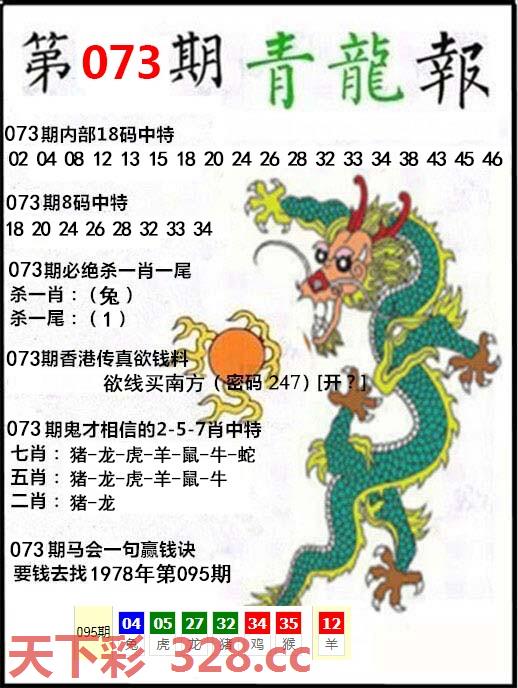 第073期青龍報
073期内部18码中特
02 04 08 12 13 15 18 20 24 26 28 32 33 34 38 43 45 46
073期8码中特
18 20 24 26 28 32 33 34
073期必绝杀一肖一尾
杀一肖：（兔）
杀一尾：（1）
073期香港传真欲钱料
欲线买南方（密码 247）[开？]
073期鬼才相信的2-5-7肖中特
七肖：猪-龙-虎-羊-鼠-牛-蛇
五肖：猪-龙-虎-羊-鼠-牛
二肖：猪-龙
073期马会一句赢钱诀
要钱去找1978年第095期
095期 04 05 27 32 34 35 12
兔 虎 龙 猪 鸡 猴 羊
天下彩 328.cc